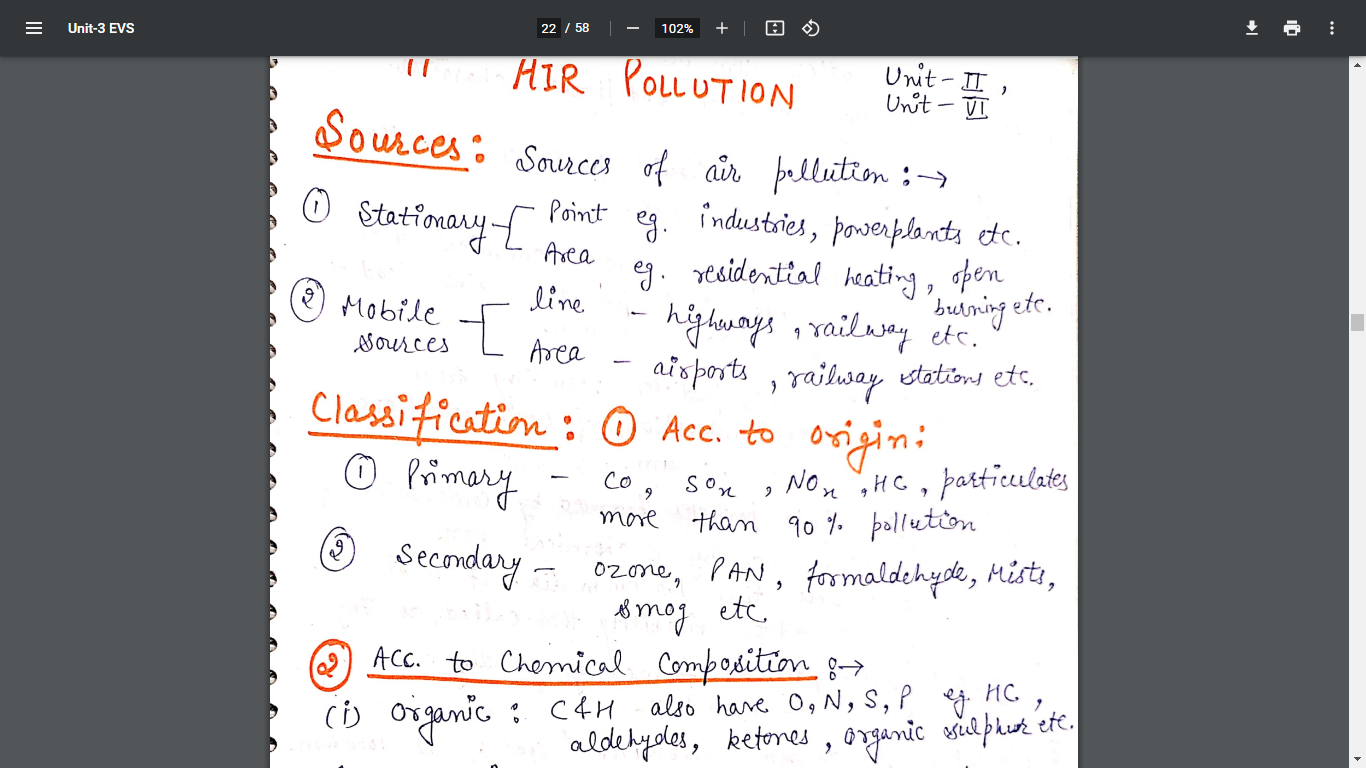 Unit-3 EVS
22 / 58
102%
AIR POLLUTION
Unit - II,
Unit - VI
Sources: Sources of air pollution :→
① Stationary Point eg. industries, powerplants etc.
Area eg. residential heating, open
burning etc.
② Mobile sources line - highways, railway etc.
Area - airports, railway stations etc.
Classification: ① Acc. to origin:
① Primary - CO, SOx, NOx, HC, particulates
more than 90% pollution
② Secondary - Ozone, PAN, formaldehyde, Mists,
smog etc.
② Acc. to Chemical Composition :→
(i) Organic : C & H also have O, N, S, P eg. HC,
aldehydes, ketones, organic sulphur etc.